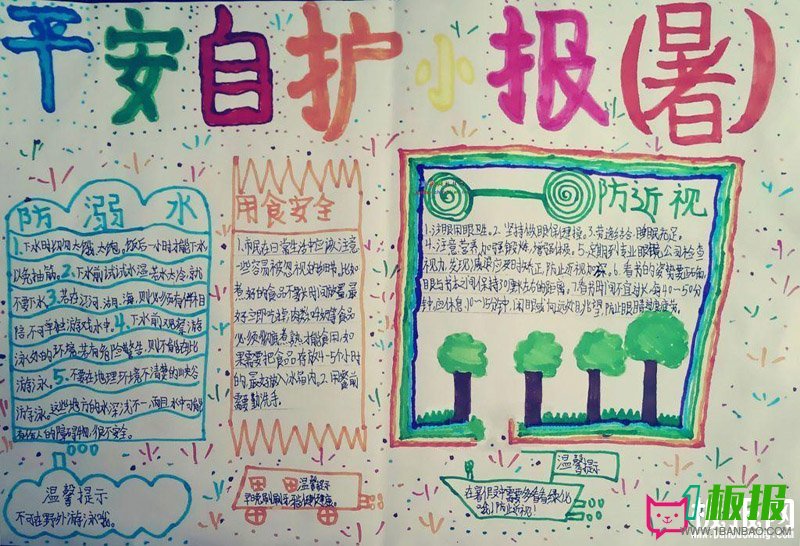 平安自护小报(暑)
防溺水
1.下水时切勿太饿、太饱。饭后一小时才能下水
以免抽筋。2.下水前试试水温,若水太冷,就
不要下水。3.若在江、河、湖、海,则必须有伴相
陪,不可单独游戏水中。4.下水前观察游
泳处的环境,若有危险警告,则不能在此
游泳。5.不要在地理环境不清楚的峡谷
游泳。这些地方的水深浅不一,而且水中可能
有伤人的障碍物,很不安全。
温馨提示
不可在野外游泳哦。
用食安全
1.市民在日常生活中应该注意
一些容易被忽视的细节,比如
煮好的食品不要长时间放置,最
好立即吃掉,肉类、
必须彻底煮熟才能食用,如
果需要把食品存放4-5个小时
的,最好放入冰箱内。2.用餐前
需要勤洗手。
温馨提示
早晚刷刷牙
防近视
1.注明用眼卫生。2.坚持做眼保健操。3.营造 睡眠充足。
4.注意营养,加强锻炼,增强体质。5.定期到专业眼镜公司检查
视力,发现减退应及时矫正,防止近视加深。6.看书的姿势要正确
眼与书本之间保持30厘米左右的距离。7.看书时间不宜过长,每40-50分
钟应休息10-15分钟,闭眼或向远处眺望,防止眼睛过度疲劳。
温馨提示
在暑假里需要多看看绿化
哦!防止近视!
1板报
WWW.1BANBAO.COM